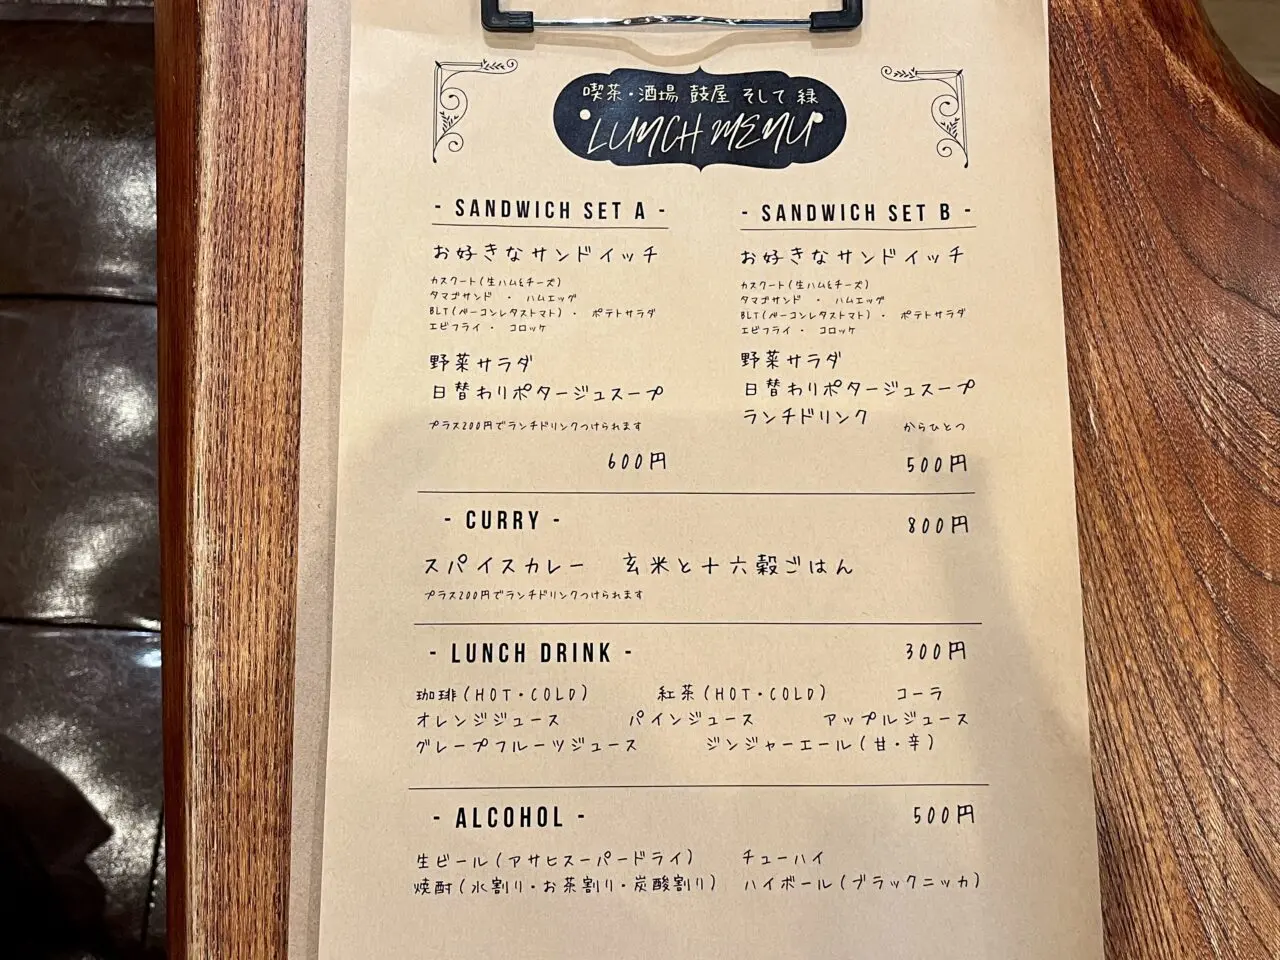 喫茶・酒場 鼓屋 そして 緑
LUNCH MENU
- SANDWICH SET A -
お好きなサンドイッチ
カスクート(生ハム&チーズ)
タマゴサンド ・ ハムエッグ
BLT(ベーコンレタストマト)・ ポテトサラダ
エビフライ・ コロッケ
野菜サラダ
日替わりポタージュスープ
プラス200円でランチドリンクつけられます
600円
- SANDWICH SET B -
お好きなサンドイッチ
カスクート(生ハム&チーズ)
タマゴサンド ・ ハムエッグ
BLT(ベーコンレタストマト)・ ポテトサラダ
エビフライ・ コロッケ
野菜サラダ
日替わりポタージュスープ
ランチドリンク からひとつ
500円
- CURRY - 800円
スパイスカレー 玄米と十六穀ごはん
プラス200円でランチドリンクつけられます
- LUNCH DRINK - 300円
珈琲(HOT・COLD) 紅茶(HOT・COLD) コーラ
オレンジジュース パインジュース アップルジュース
グレープフルーツジュース ジンジャーエール(甘・辛)
- ALCOHOL - 500円
生ビール(アサヒスーパードライ) チューハイ
焼酎(水割り・お茶割り・炭酸割り) ハイボール(ブラックニッカ)